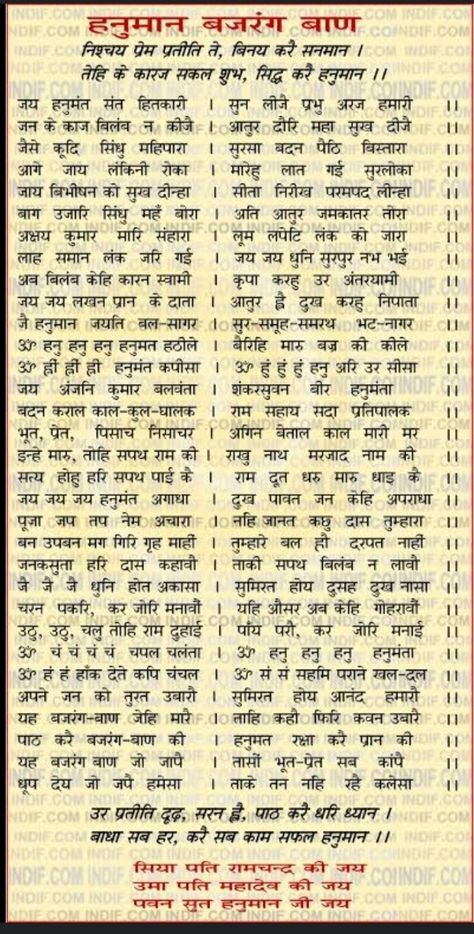 हनुमान बजरंग बाण
निश्चय प्रेम प्रतीति ते, बिनय करै सनमान ।
तेहि के कारज सकल शुभ, सिद्ध करै हनुमान ।।
जय हनुमंत संत हितकारी । सुन लीजै प्रभु अरज हमारी ।।
जन के काज बिलंब न कीजै । आतुर दौरि महा सुख दीजै ।।
जैसे कूदि सिंधु महिपारा । सुरसा बदन पैठि बिस्तारा ।।
आगे जाय लंकिनी रोका । मारेहु लात गई सुरलोका ।।
जाय बिभीषन को सुख दीन्हा । सीता निरखि परमपद लीन्हा ।।
बाग उजारि सिंधु महँ बोरा । अति आतुर जमकातर तोरा ।।
अक्षय कुमार मारि संहारा । लूम लपेटि लंक को जारा ।।
लाह समान लंक जरि गई । जय जय धुनि सुरपुर नभ भई ।।
अब बिलंब केहि कारन स्वामी । कृपा करहु उर अंतरयामी ।।
जय जय लखन प्रान के दाता । आतुर ह्वै दुख करहु निपाता ।।
जै हनुमान जयति बल-सागर । सुर-समूह-समरथ भट-नागर ।।
ॐ हनु हनु हनु हनुमत हठीले । बैरिहि मारु बज्र की कीले ।।
ॐ ह्नीं ह्नीं ह्नीं हनुमंत कपीसा । ॐ हुं हुं हुं हनु अरि उर सीसा ।।
जय अंजनि कुमार बलवंता । शंकरसुवन बीर हनुमंता ।।
बदन कराल काल-कुल-घालक । राम सहाय सदा प्रतिपालक ।।
भूत, प्रेत, पिसाच निसाचर । अगिन बेताल काल मारी मर ।।
इन्हे मारु, तोहि सपथ राम की । राखु नाथ मरजाद नाम की ।।
सत्य होहु हरि सपथ पाई कै । राम दूत धरु मारु धाइ कै ।।
जय जय जय हनुमंत अगाधा । दुख पावत जन केहि अपराधा ।।
पूजा जप तप नेम अचारा । नहि जानत कछु दास तुम्हारा ।।
बन उपबन मग गिरि गृह माहीं । तुम्हारे बल हौं दरपत नाहीं ।।
जनकसुता हरि दास कहावौ । ताकी सपथ बिलंब न लावौ ।।
जै जै जै धुनि होत अकासा । सुमिरत होय दुसह दुख नासा ।।
चरन पकरि, कर जोरि मनावौं । यहि औसर अब केहि गोहरावौं ।।
उठु, उठु, चलु तोहि राम दुहाई । पाँय परौं, कर जोरि मनाई ।।
ॐ चं चं चं चं चपल चलंता । ॐ हनु हनु हनु हनु हनुमंता ।।
ॐ हं हं हाँक देत कपि चंचल । ॐ सं सं सहमि पराने खल-दल ।।
अपने जन को तुरत उबारौ । सुमिरत होय आनंद हमारौ ।।
यह बजरंग-बाण जेहि मारै । ताहि कहौ फिरि कवन उबारै ।।
पाठ करै बजरंग-बाण की । हनुमत रक्षा करै प्रान की ।।
यह बजरंग बाण जो जापै । तासों भूत-प्रेत सब कांपै ।।
धूप देय जो जपै हमेसा । ताके तन नहि रहे कलेसा ।।
उर प्रतीति दृढ़, सरन ह्वै, पाठ करै धरि ध्यान ।
बाधा सब हर, करै सब काम सफल हनुमान ।।
सिया पति रामचन्द्र की जय
उमा पति महादेव की जय
पवन सुत हनुमान जी जय